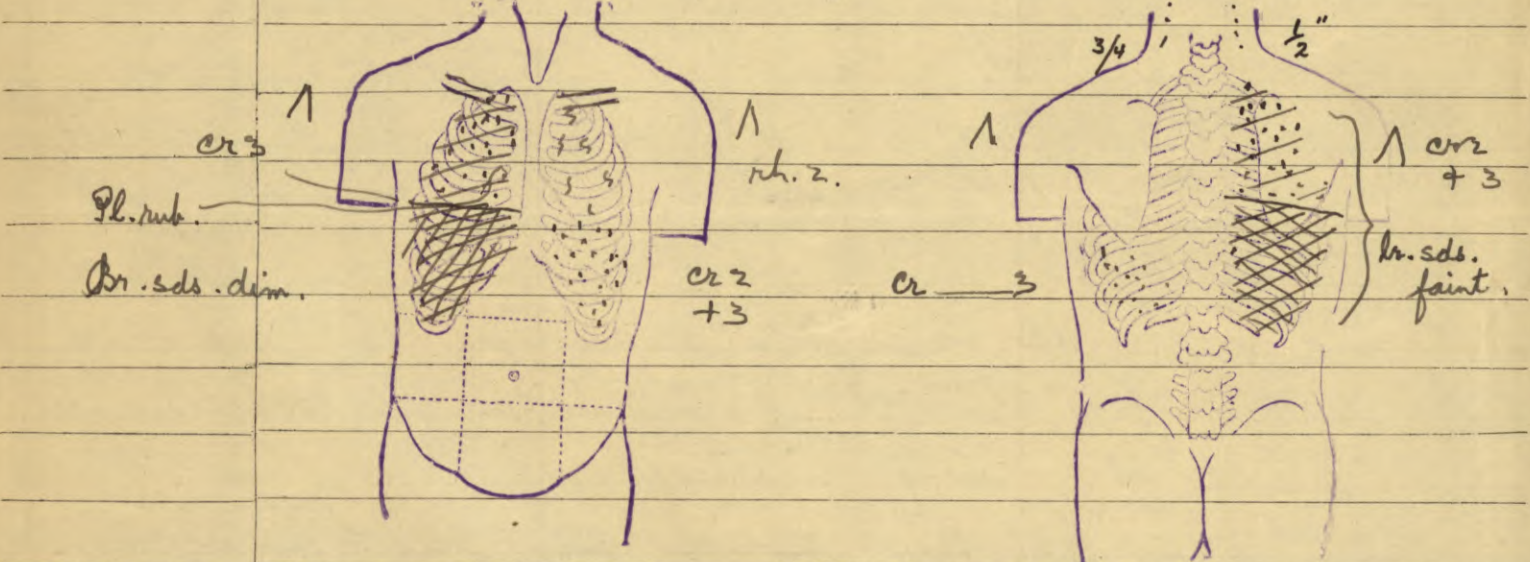 cr 3
Pl. rub.
Br. sds. dim.
rh. 2.
cr 2
+3
3/4
1/2"
cr 3
cr 2
+ 3
br. sds.
faint.